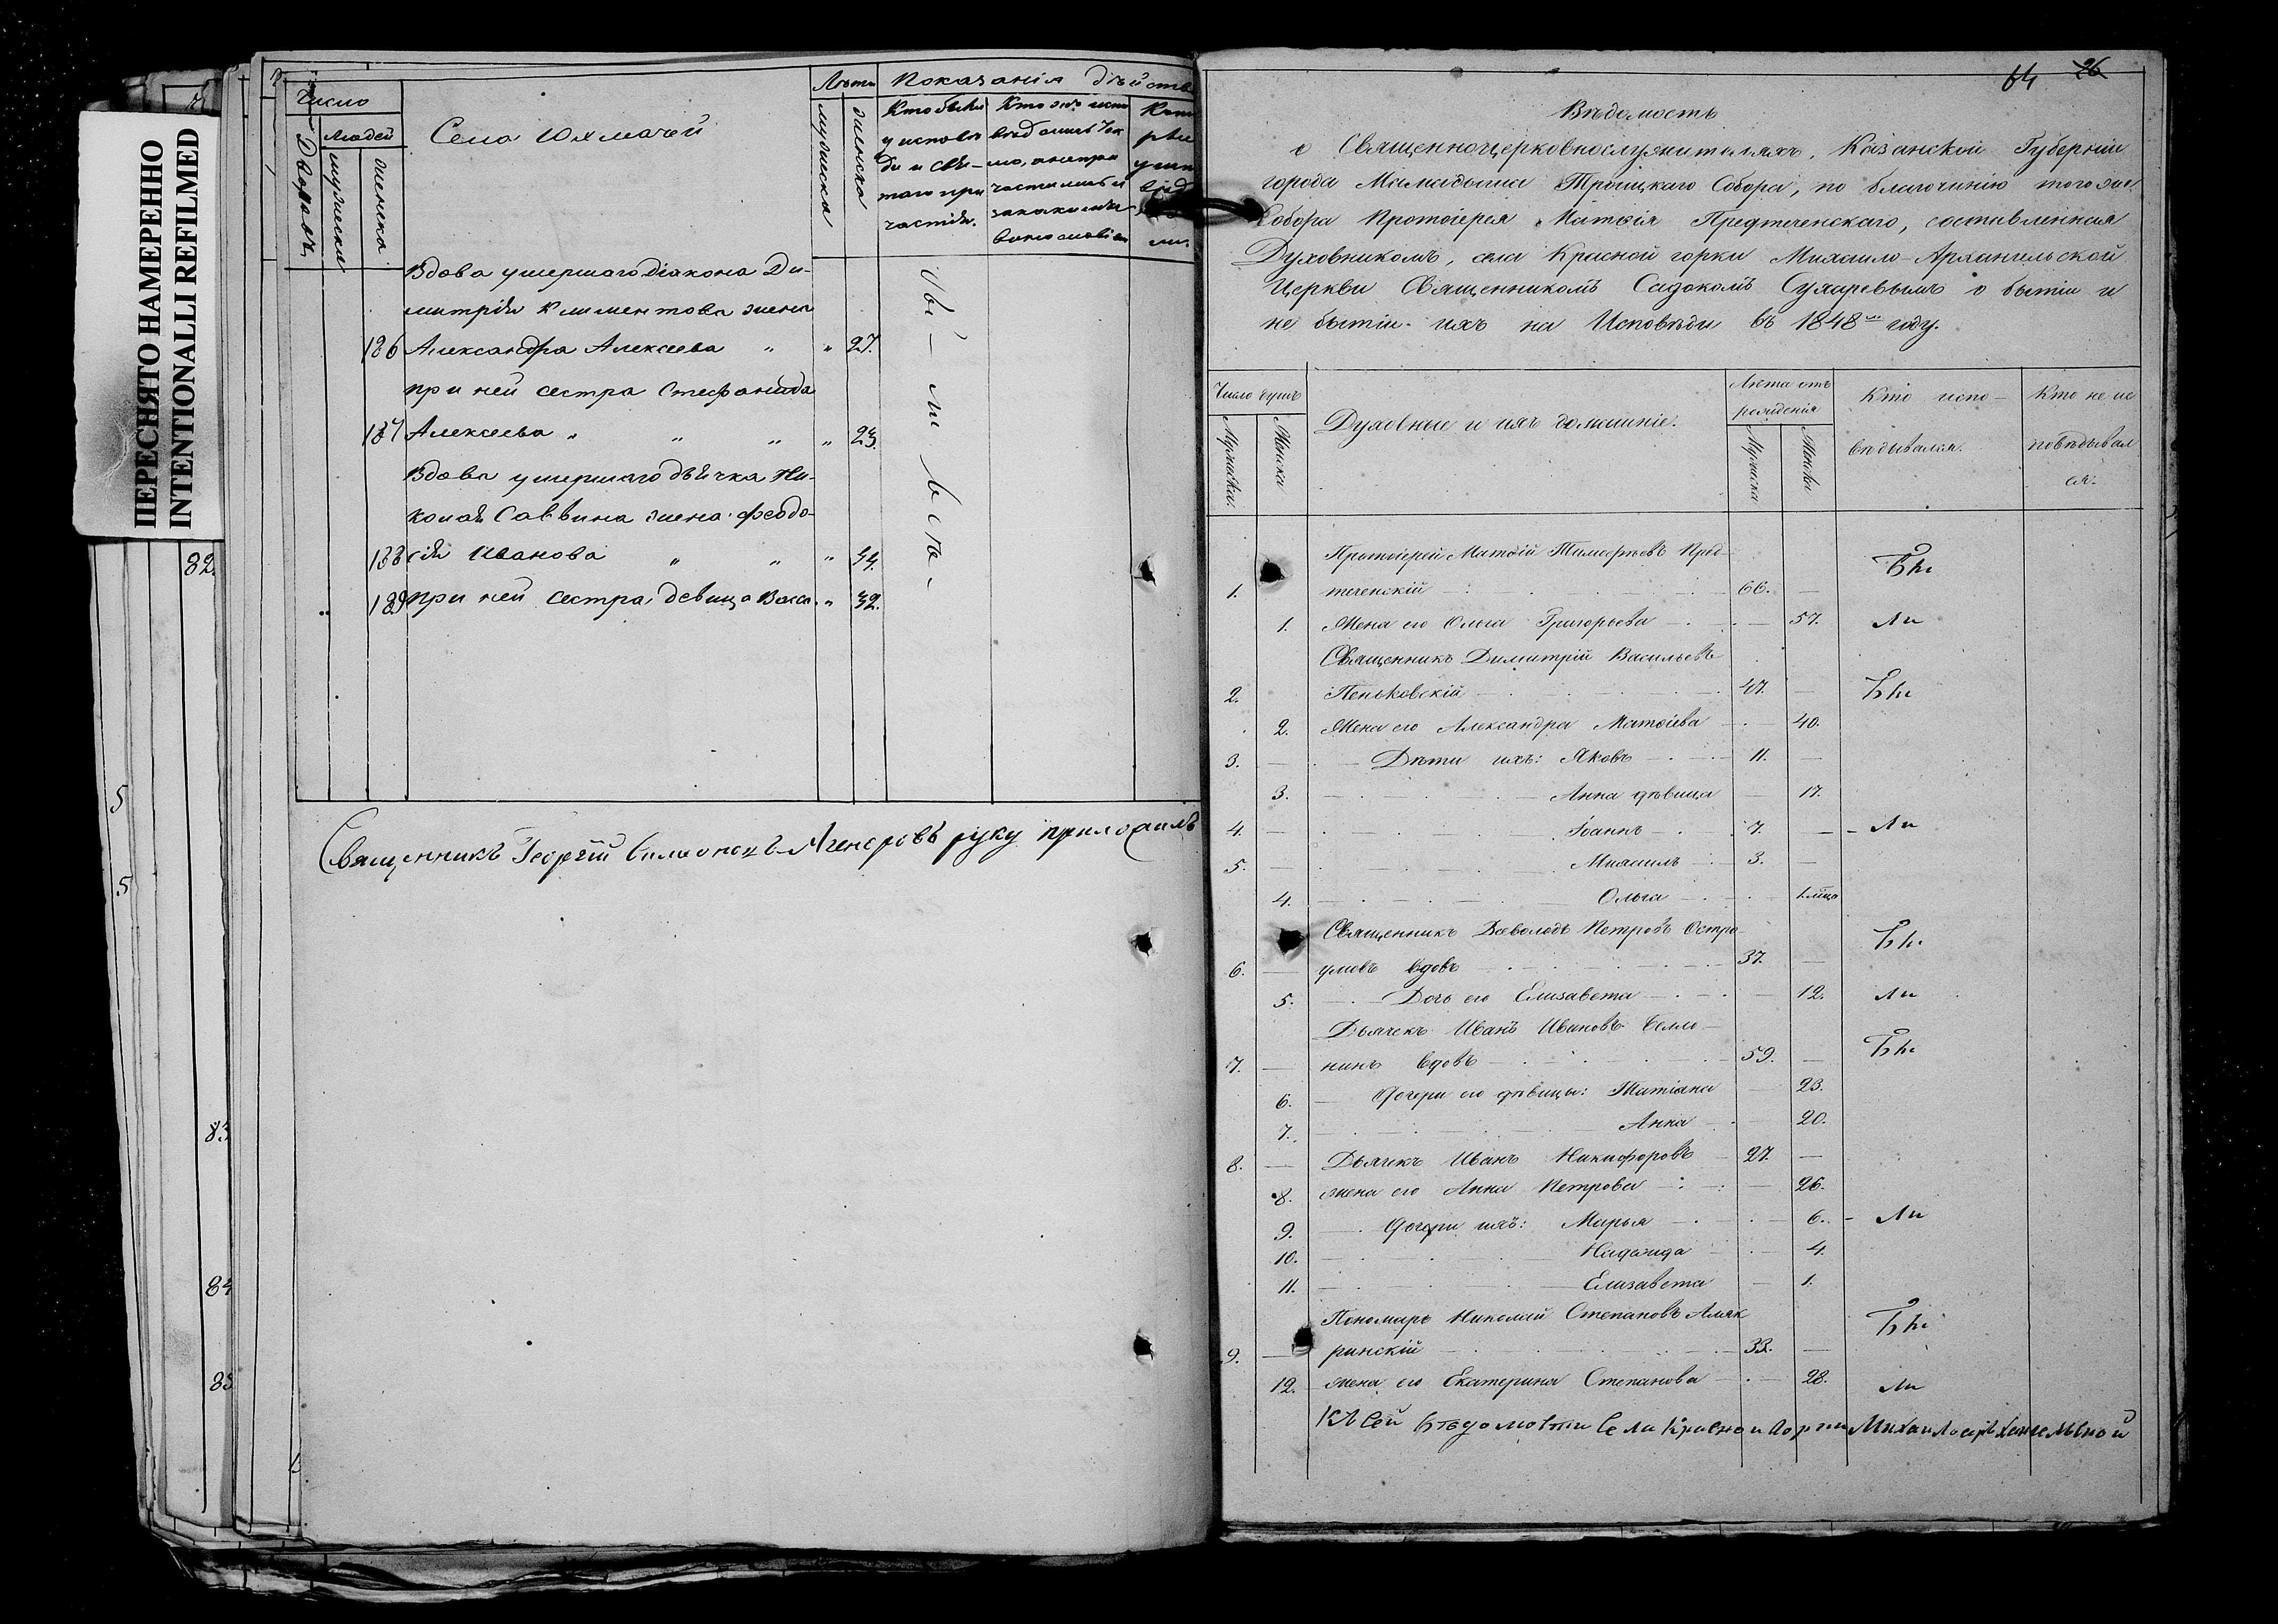 ПЕРЕСНЯТО НАМЕРЕННО
INTENTIONALLI REFILMED
82.
5
5
83
84
85
Число
Дворовъ
Людей
мужеска
женска
Села Юхмачей
Лѣта
мужеска
женска
Показанія дѣйств
Кто были
у исповѣ
ди и свя-
таго при
частія.
Кто жъ испо
вѣдались ток
мо, а не при
частились и
за какимъ
винословіем
Вдова умершаго діакона Ди-
митрія Климентова жена
136 Александра Алексеева " " 27.
при ней сестра Стефанида
137 Алексеева " " " " 23.
Вдова умершаго дьячка Ни-
колая Саввина жена Феодо-
138 сія Иванова " " " 34.
139 при ней сестра девица Васса " 32.
бы – ли вси.
Священникъ Георгій руку приложилъ
64 26
Вѣдомость
о Священноцерковнослужителяхъ, Казанской Губерніи
города Мамадыша Троицкаго Собора, по благочинію того же
Собора Протоіерея Матѳія Предтеченскаго, составленная
Духовникомъ, села Красной горки Михаило-Архангельской
Церкви Священникомъ Садокомъ Сухаревымъ о бытіи и
не бытіи ихъ на Исповѣди въ 1848м году.
Число душъ
Мужеска.
Женска
Духовные и ихъ домашніе.
Лѣта отъ
рожденія
Мужеска
Женска
Кто испо-
вѣдывался.
Кто не ис
повѣдывал
ся.
Протоіерей Матѳій Тимофѣевъ Пред-
1. теченскій 66.
1. Жена его Ольга Григорьева 57. ли
Священникъ Димитрій Васильевъ
2. Пеньковскій 47.
2. Жена его Александра Матѳіева 40.
3. Дѣти ихъ: Яковъ 11.
3. Анна дѣвица 17.
4. Іоаннъ 7. ли
5. Михаилъ 3.
4. Ольга 1 мѣца
Священникъ Всеволодъ Петровъ Остро
6. умовъ вдовъ 37.
5. Дочь его Елизавета 12. ли
Дьячекъ Иванъ Ивановъ
7. нинъ вдовъ 59.
6. Дочери его дѣвицы: Татіана 23.
7. Анна 20.
8. Дьячекъ Иванъ Никифоровъ 27.
8. жена его Анна Петрова 26.
9. Дочери ихъ: Марья 6. ли
10. Надежда 4.
11. Елизавета 1.
Пономарь Николай Степановъ Амяк
9. ринскій 33.
12. жена его Екатерина Степанова 28. ли
Къ Сей вѣдомости Села Красной Горки Михаилоархангельской